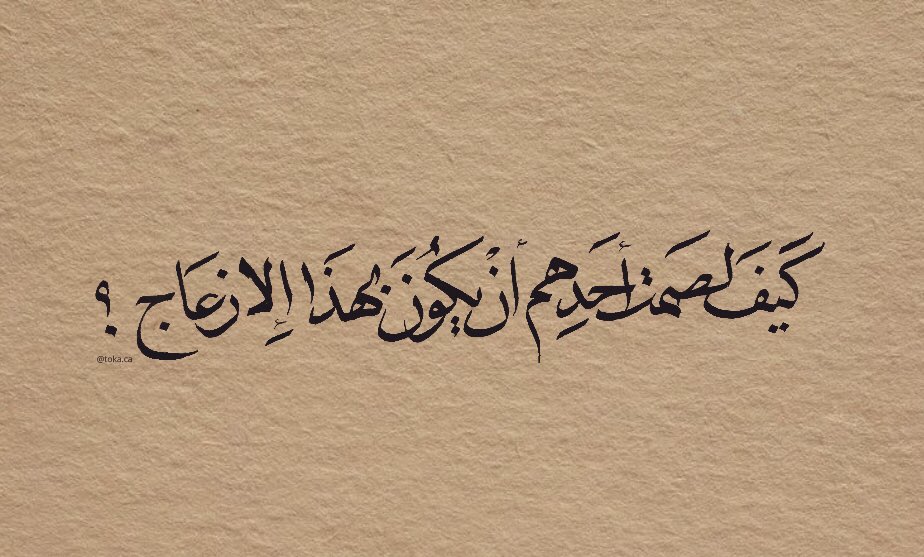 كَيفَ لصَمت أَحَدِهم أَنْ يَكُونَ بَهذَا إِالازعَاج ؟
@toka.ca